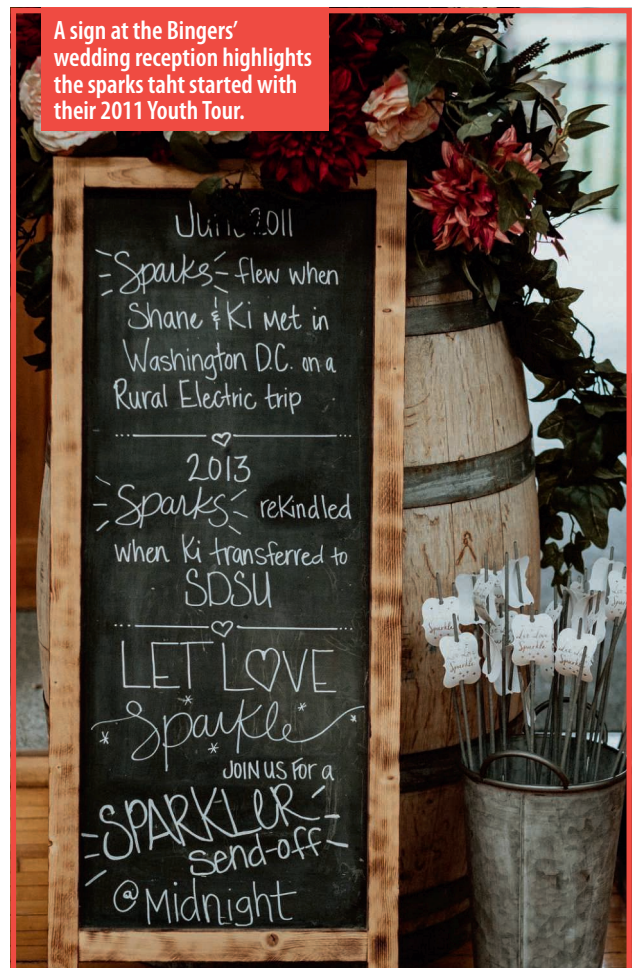 A sign at the Bingers’
wedding reception highlights
the sparks taht started with
their 2011 Youth Tour.
June 2011
Sparks flew when
Shane & Ki met in
Washington D.C. on a
Rural Electric trip
2013
Sparks rekindled
when Ki transferred to
SDSU
LET LOVE
Sparkle
JOIN US FOR a
SPARKLER
send-off
@ Midnight
Sparkle
Let Love
Sparkle
Sparkle